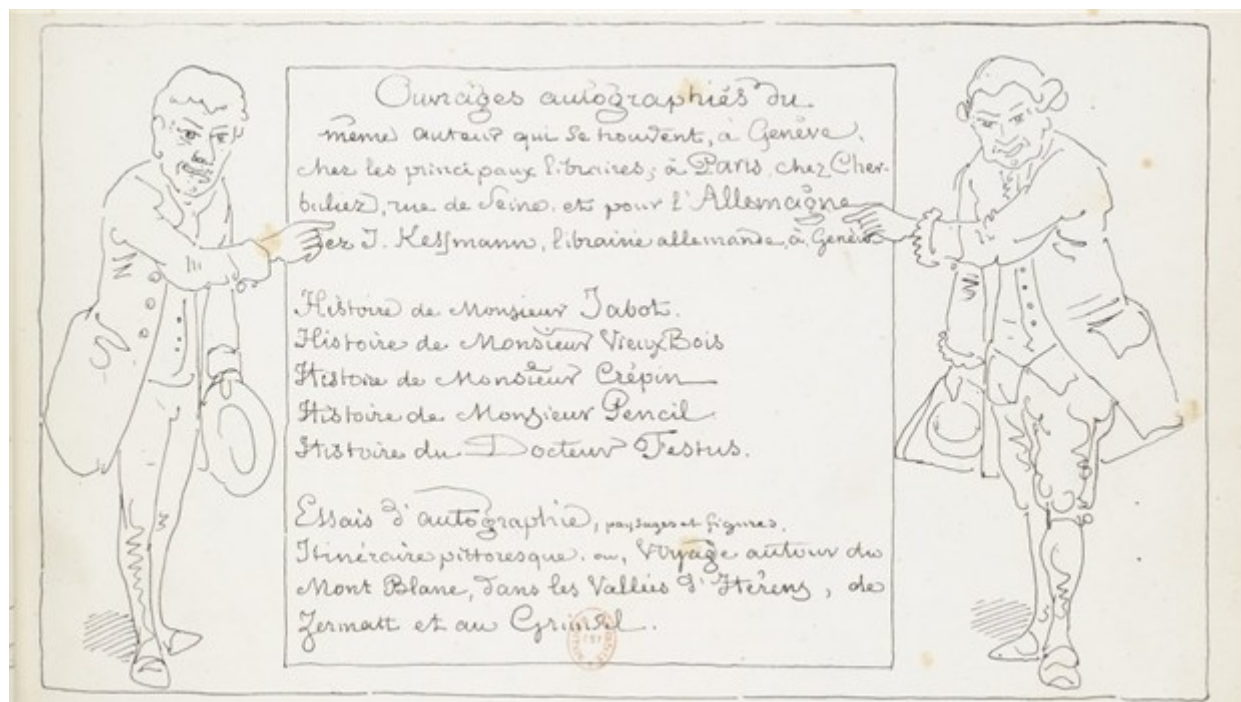 Ouvrages autographiés du
même auteur qui se trouvent, à Genève,
chez les principaux libraires; à Paris, chez Cher-
buliez, rue de Seine. et pour l'Allemagne
chez J. Kessmann, librairie allemande, à Genève
Histoire de Monsieur Jabot.
Histoire de Monsieur Vieux Bois
Histoire de Monsieur Crépin
Histoire de Monsieur Pencil.
Histoire du Docteur Festus.
Essais d'autographie, paysages et figures.
Itinéraire pittoresque. ou, Voyage autour du
Mont Blanc, dans les Vallées d'Hérens, de
Zermatt et au Grimsel.